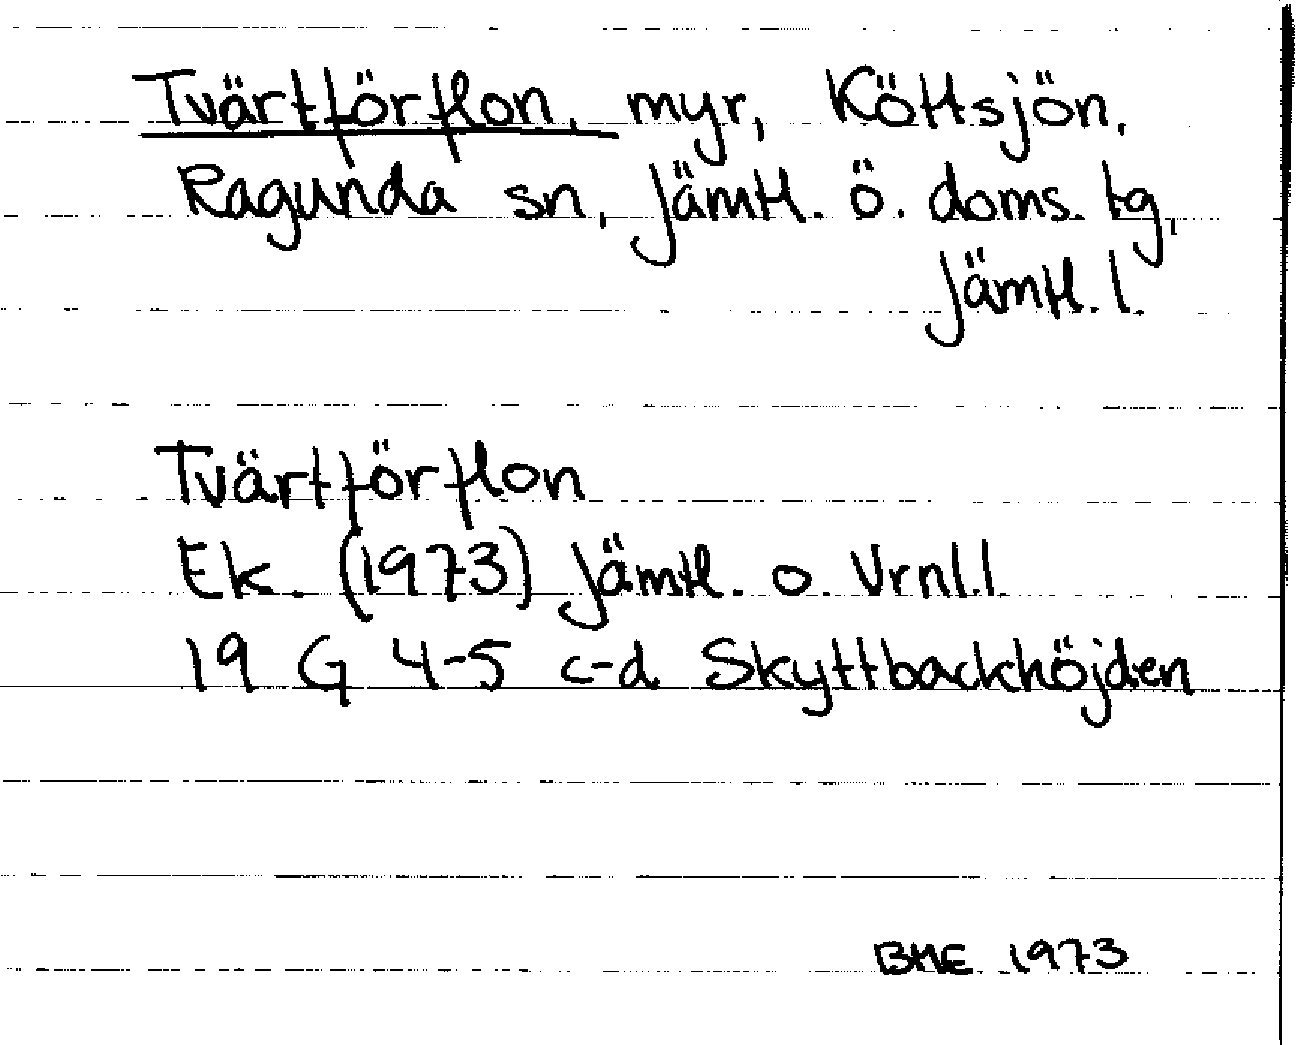 Tvärtförflon, myr, Köttsjön,
Ragunda sn, Jämtl. ö. doms. tg,
Jämtl. l.
Tvärtförflon
Ek. (1973) Jämtl. o. Vrnl. l.
19 G 4-5 c-d Skyttbackhöjden
BME 1973